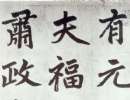 有元
夫福
肅政